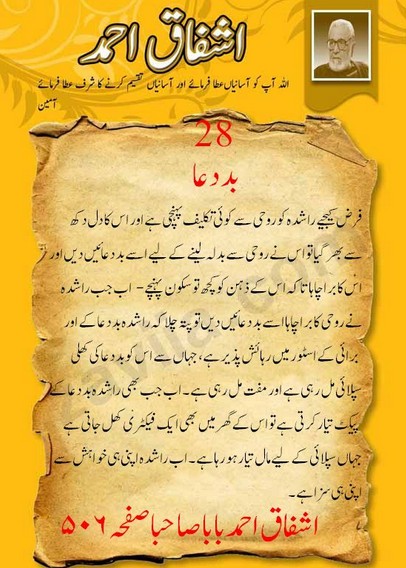 اشفاق احمد
اللہ آپ کو آسانیاں عطا فرمائے اور آسانیاں تقسیم کرنے کا شرف عطا فرمائے
آمین
28
بددعا
فرض کیجیے راشدہ کو روحی سے کوئی تکلیف پہنچی ہے اور اس کا دل دکھ
سے بھر گیا تو اس نے روحی سے بدلہ لینے کے لیے اسے بددعائیں دیں اور
اس کا برا چاہا تا کہ اس کے ذہن کو کچھ تو سکون پہنچے - اب جب راشدہ
نے روحی کا برا چاہا اسے بددعائیں دیں تو پتہ چلا کہ راشدہ بددعا کے اور
برائی کے اسٹور میں رہائش پذیر ہے، جہاں سے اس کو بددعا کی کھلی
سپلائی مل رہی ہے اور مفت مل رہی ہے۔ اب جب بھی راشدہ بددعا کے
پیکٹ تیار کرتی ہے تو اس کے گھر میں بھی ایک فیکٹری کھل جاتی ہے
جہاں سپلائی کے لیے مال تیار ہو رہا ہے۔ اب راشدہ اپنی ہی خواہش سے
اپنی ہی سزا ہے۔
اشفاق احمد بابا صاحبا صفحہ ۵۰۶